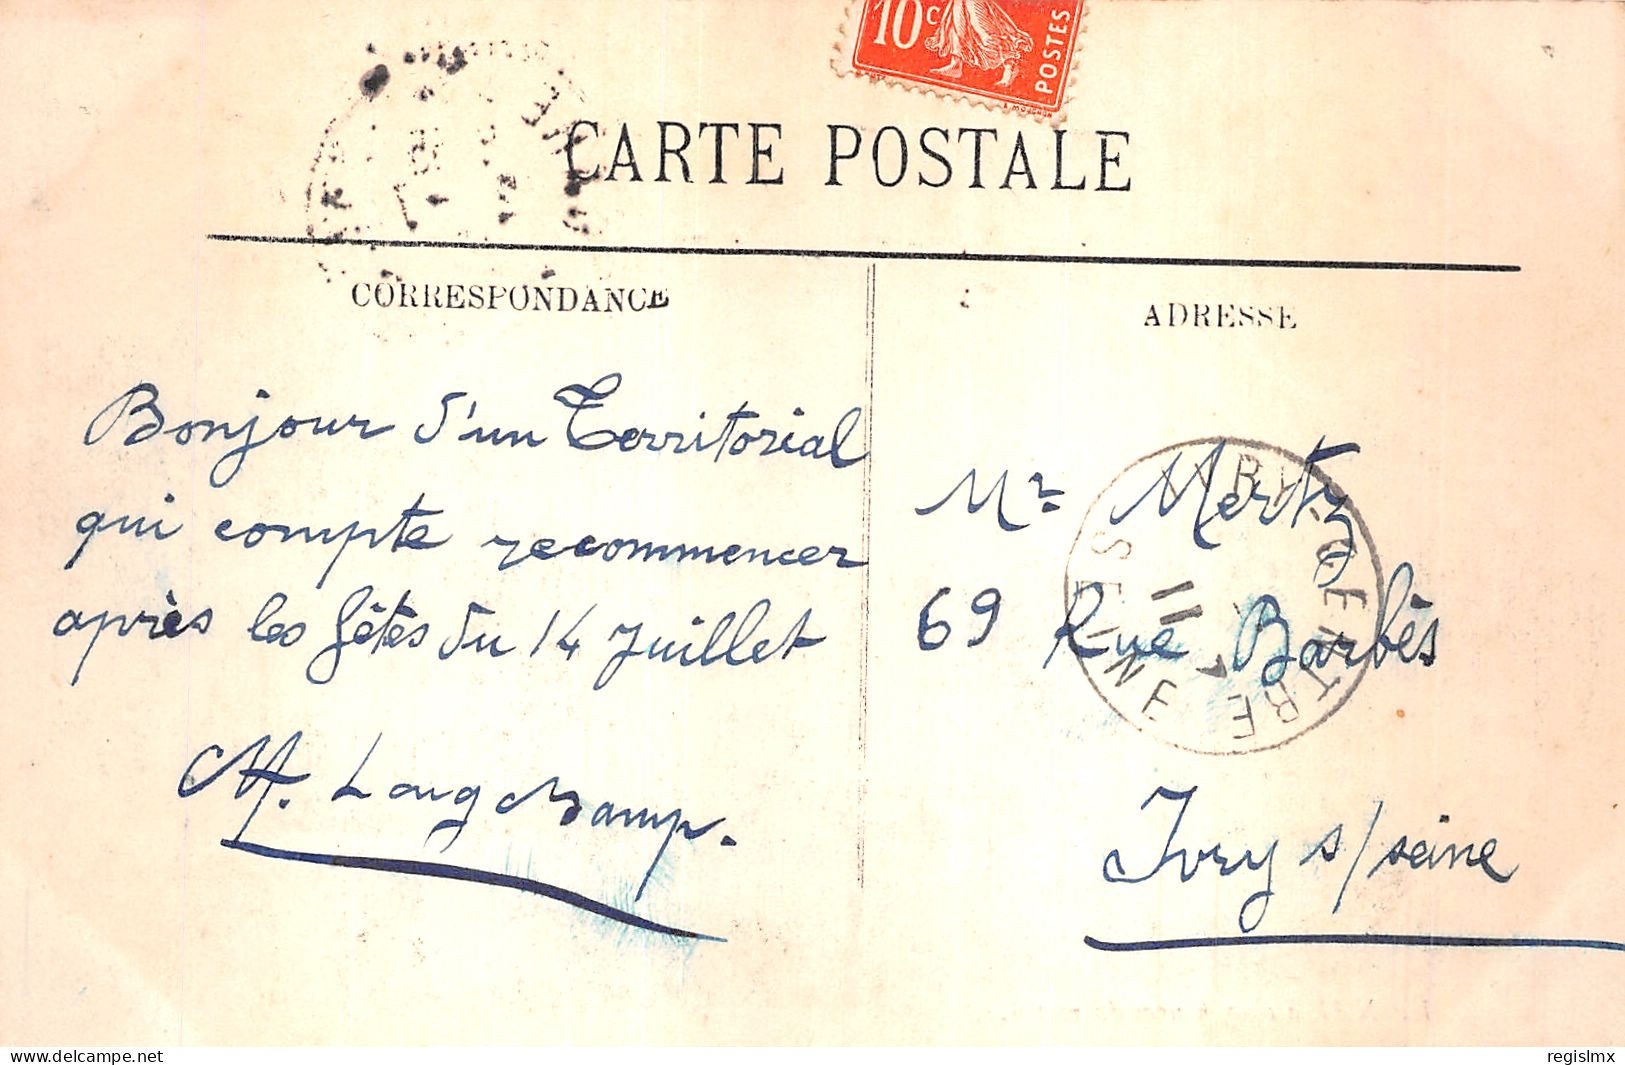 10c
POSTES
CARTE POSTALE
CORRESPONDANCE
ADRESSE
Bonjour d'un Territorial
qui compte recommencer
après les fêtes du 14 Juillet
M. Longchamp.
Mr Mertz
69 Rue Barbès
Ivry s/seine
IVRY-CENTRE
SEINE
11
7
delcampe.net
regislmx